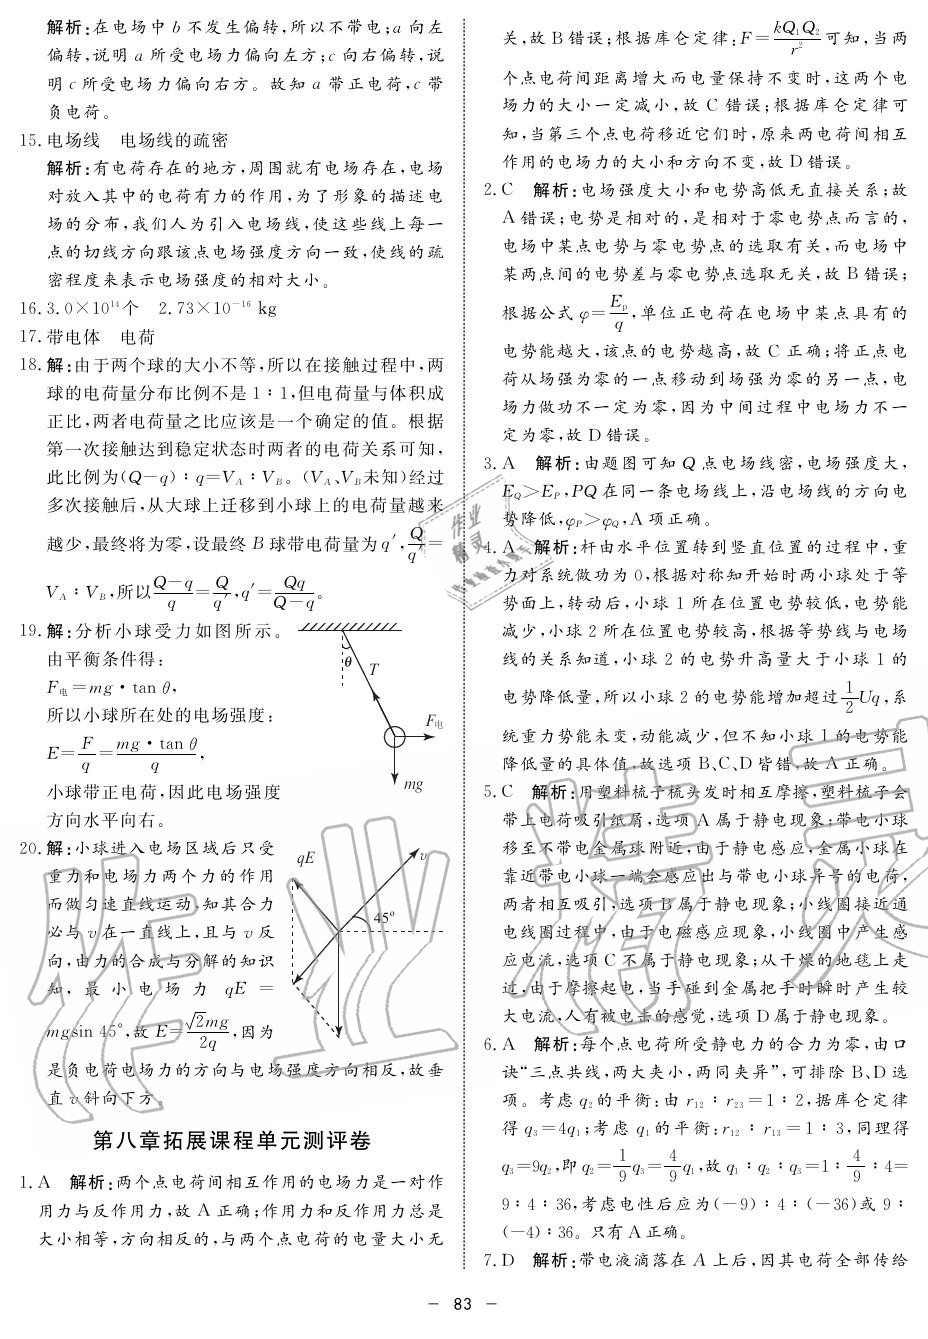 解析:在电场中 b 不发生偏转,所以不带电;a 向左
偏转,说明 a 所受电场力偏向左方;c 向右偏转,说
明 c 所受电场力偏向右方。故知 a 带正电荷,c 带
负电荷。
15. 电场线 电场线的疏密
解析:有电荷存在的地方,周围就有电场存在,电场
对放入其中的电荷有力的作用,为了形象的描述电
场的分布,我们人为引入电场线,使这些线上每一
点的切线方向跟该点电场强度方向一致,使线的疏
密程度来表示电场强度的相对大小。
16. 3.0×10¹⁴个 2.73×10⁻¹⁶ kg
17. 带电体 电荷
18. 解:由于两个球的大小不等,所以在接触过程中,两
球的电荷量分布比例不是 1∶1,但电荷量与体积成
正比,两者电荷量之比应该是一个确定的值。根据
第一次接触达到稳定状态时两者的电荷关系可知,
此比例为(Q−q)∶q=V_A∶V_B。(V_A、V_B未知)经过
多次接触后,从大球上迁移到小球上的电荷量越来
越少,最终将为零,设最终 B 球带电荷量为 q′,Q/q′=
V_A∶V_B,所以(Q−q)/q=Q/q′,q′=Qq/(Q−q)。
19. 解:分析小球受力如图所示。
由平衡条件得:
F电=mg·tan θ,
所以小球所在处的电场强度:
E=F/q=mg·tan θ/q,
小球带正电荷,因此电场强度
方向水平向右。
θ
T
F电
mg
20. 解:小球进入电场区域后只受
重力和电场力两个力的作用
而做匀速直线运动,知其合力
必与 v 在一直线上,且与 v 反
向,由力的合成与分解的知识
知,最小电场力 qE=
mgsin 45°,故 E=√2mg/2q,因为
是负电荷电场力的方向与电场强度方向相反,故垂
直 v 斜向下方。
qE
v
45°
第八章拓展课程单元测评卷
1. A 解析:两个点电荷间相互作用的电场力是一对作
用力与反作用力,故 A 正确;作用力和反作用力总是
大小相等,方向相反的,与两个点电荷的电量大小无
关,故 B 错误;根据库仑定律:F=kQ₁Q₂/r²可知,当两
个点电荷间距离增大而电量保持不变时,这两个电
场力的大小一定减小,故 C 错误;根据库仑定律可
知,当第三个点电荷移近它们时,原来两电荷间相互
作用的电场力的大小和方向不变,故 D 错误。
2. C 解析:电场强度大小和电势高低无直接关系;故
A 错误;电势是相对的,是相对于零电势点而言的,
电场中某点电势与零电势点的选取有关,而电场中
某两点间的电势差与零电势点选取无关,故 B 错误;
根据公式 φ=Eₚ/q,单位正电荷在电场中某点具有的
电势能越大,该点的电势越高,故 C 正确;将正点电
荷从场强为零的一点移动到场强为零的另一点,电
场力做功不一定为零,因为中间过程中电场力不一
定为零,故 D 错误。
3. A 解析:由题图可知 Q 点电场线密,电场强度大,
E_Q>E_P,PQ 在同一条电场线上,沿电场线的方向电
势降低,φ_P>φ_Q,A 项正确。
4. A 解析:杆由水平位置转到竖直位置的过程中,重
力对系统做功为 0,根据对称知开始时两小球处于等
势面上,转动后,小球 1 所在位置电势较低,电势能
减少,小球 2 所在位置电势较高,根据等势线与电场
线的关系知道,小球 2 的电势升高量大于小球 1 的
电势降低量,所以小球 2 的电势能增加超过1/2Uq,系
统重力势能未变,动能减少,但不知小球 1 的电势能
降低量的具体值,故选项 B、C、D 皆错,故 A 正确。
5. C 解析:用塑料梳子梳头发时相互摩擦,塑料梳子会
带上电荷吸引纸屑,选项 A 属于静电现象;带电小球
移至不带电金属球附近,由于静电感应,金属小球在
靠近带电小球一端会感应出与带电小球异号的电荷,
两者相互吸引,选项 B 属于静电现象;小线圈接近通
电线圈过程中,由于电磁感应现象,小线圈中产生感
应电流,选项 C 不属于静电现象;从干燥的地毯上走
过,由于摩擦起电,当手碰到金属把手时瞬时产生较
大电流,人有被电击的感觉,选项 D 属于静电现象。
6. A 解析:每个点电荷所受静电力的合力为零,由口
诀“三点共线,两大夹小,两同夹异”,可排除 B、D 选
项。考虑 q₂ 的平衡:由 r₁₂∶r₂₃=1∶2,据库仑定律
得 q₃=4q₁;考虑 q₁ 的平衡:r₁₂∶r₁₃=1∶3,同理得
q₃=9q₂,即 q₂=1/9q₃=4/9q₁,故 q₁∶q₂∶q₃=1∶4/9∶4=
9∶4∶36,考虑电性后应为(−9)∶4∶(−36)或 9∶
(−4)∶36。只有 A 正确。
7. D 解析:带电液滴落在 A 上后,因其电荷全部传给
作业
精灵
作业精灵
− 83 −